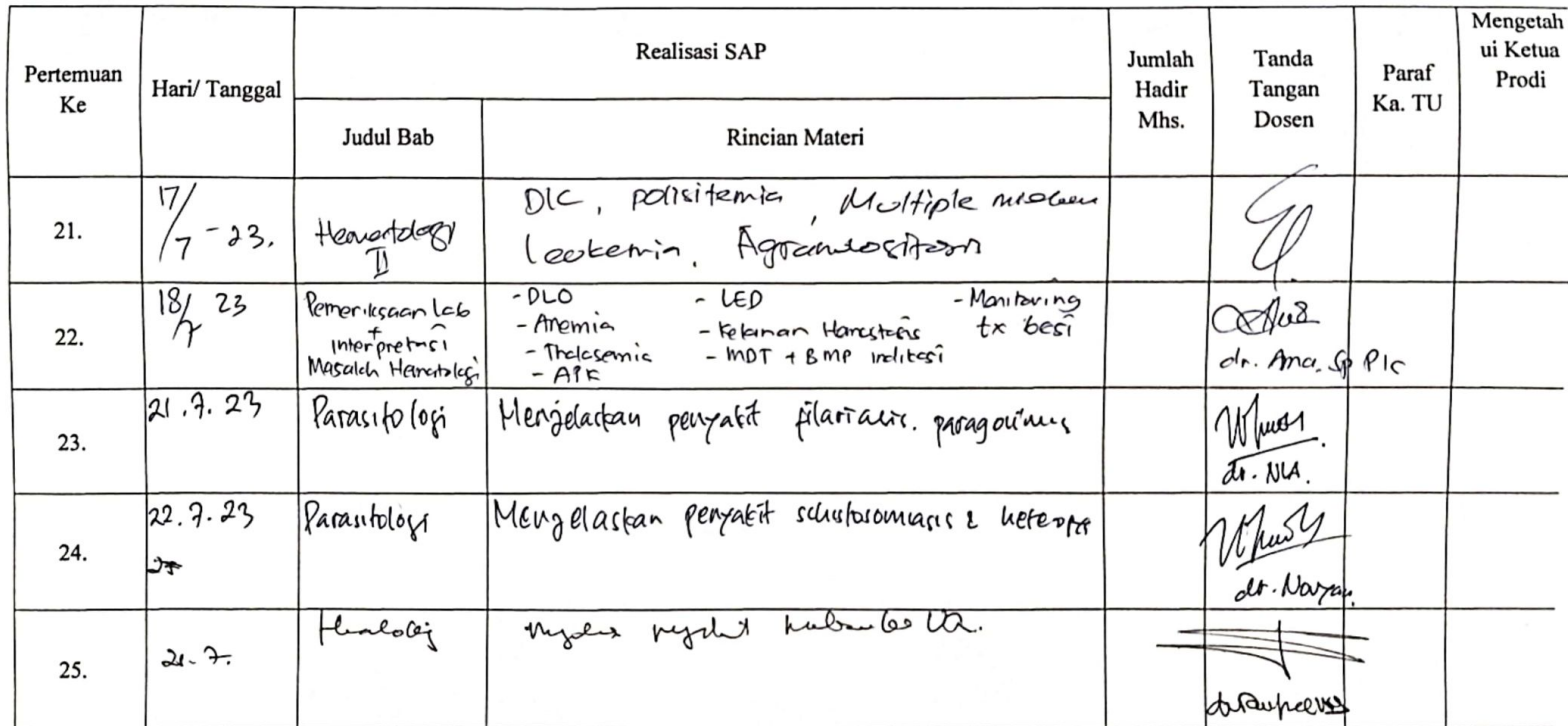 Pertemuan Ke
Hari/ Tanggal
Realisasi SAP
Judul Bab
Rincian Materi
Jumlah Hadir Mhs.
Tanda Tangan Dosen
Paraf Ka. TU
Mengetah ui Ketua Prodi
21.
17/7 - 23.
Hematologi
II
DIC, polisitemia, Multiple
leukemia, Agranulositosis
22.
18/7 23
Pemeriksaan Lab
+
interpretasi
Masalah Hematologi
- DLO
- Anemia
- Thalasemia
- APK
- LED
- Kelainan Hemostasis
- MDT + BMP indikasi
- Monitoring
tx besi
dr. Ana. Sp PK
23.
21.7.23
Parasitologi
Menjelaskan penyakit filariasis. paragonimus
dr. NLA.
24.
22.7.23
Parasitologi
Mengelaskan penyakit schistosomiasis &
dr.
25.
21-7.